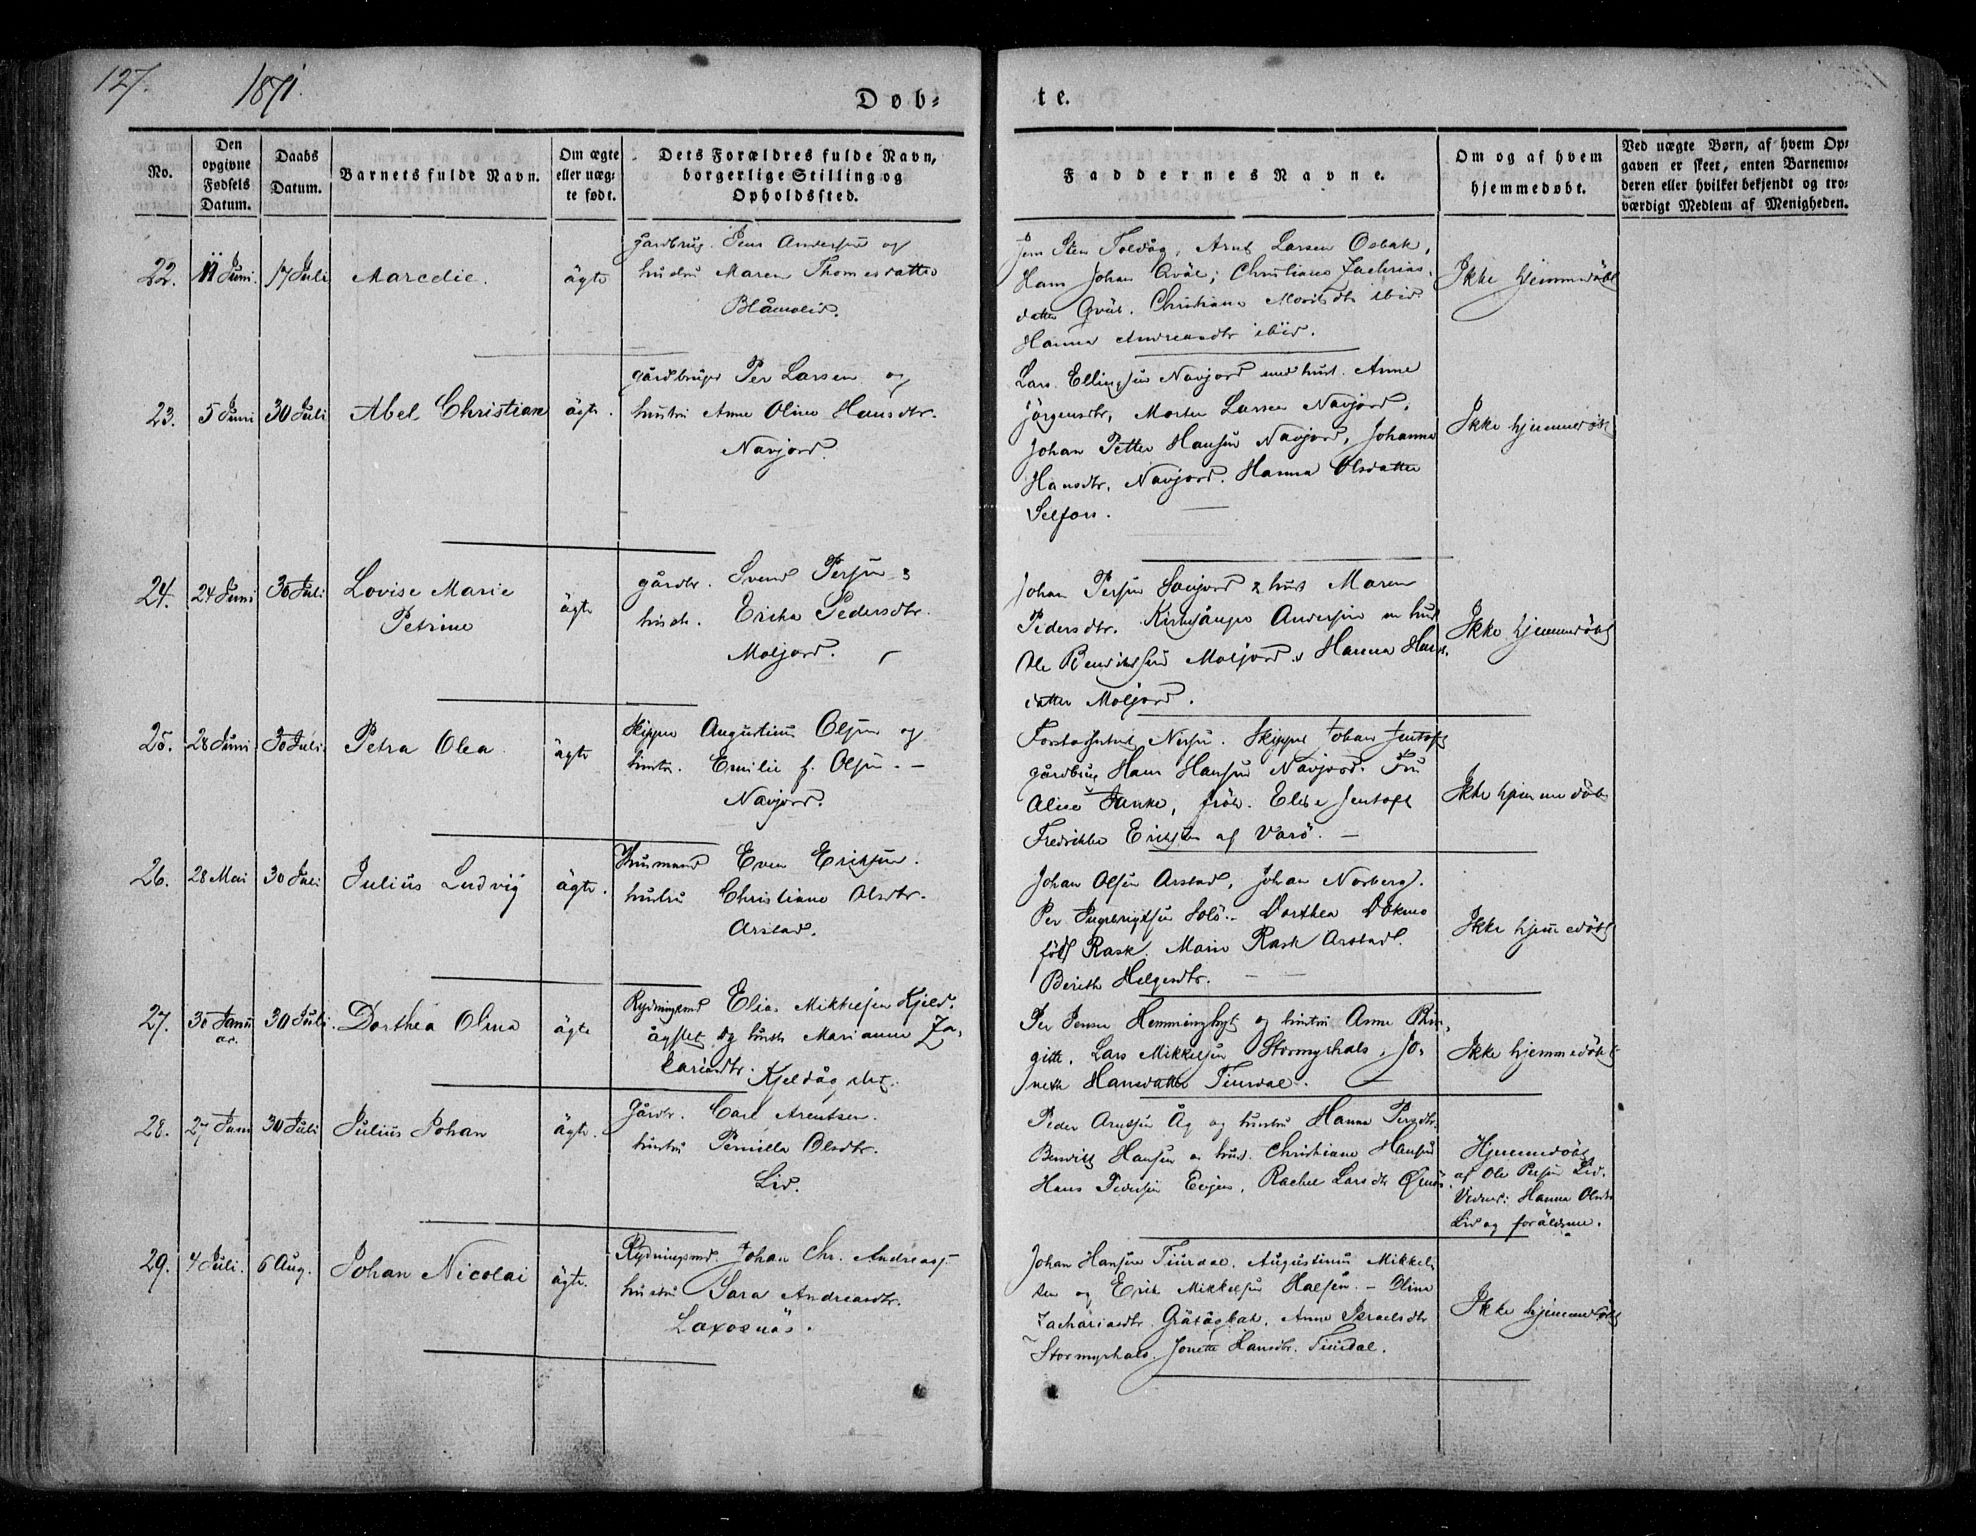 127. 1871.
Døb=
te.
No.
Den opgivne Fødsels Datum.
Daabs Datum.
Barnets fulde Navn.
Om ægte eller uæg- te født.
Dets Forældres fulde Navn, borgerlige Stilling og Opholdssted.
Faddernes Navne.
Om og af hvem hjemmedøbt.
Ved uægte Børn, af hvem Op= gaven er skeet, enten Barnemo= deren eller hvilket bekjendt og tro= værdigt Medlem af Menigheden.
22. 11 Juni. 17 Juli Marcelie. ägte
gårdbrug. Jens Andersen og
hustru Maren Thomesdatter
Blåmolid.
Jens Sten Toldåg, Arnt Larsen Osbak,
Hans Johan Qväl; Christiane Zacharias
datter Qväl. Christiane Moritsdtr ibid.
Hanna Andreasdtr ibid.
Ikke hjemmedöbt
23. 5 Juni 30 Juli Abel Christian ägte.
gårdbruger Per Larsen og
hustru Anne Oline Hansdtr.
Navjord.
Lars Ellingsen Navjord med hust. Anne
Jörgensdtr, Morten Larsen Navjord,
Johan Petter Hansen Navjord, Johanna
Hansdtr, Navjord. Hanna Olsdatter
Selfors.
Ikke hjemmedöbt
24. 24 Juni 30 Juli Lovise Marie
Petrine ägte
gårdbr. Svend Persen &
hustr. Erika Pedersdtr.
Moljord.
Johan Persen Savjord & hust Maren
Pedersdtr. Kirkesånger Andersen m hust
Ole Bendiksen Moljord & Hanna Hans
datter Moljord.
Ikke hjemmedöbt
25. 28 Juni 30 Juli. Petra Olea. ägte
Skipper Augustinus Olsen og
hustr. Emilie f. Olsen. –
Navjord.
Skipper Johan Jentoft
gårdbrug Hans Hansen Navjord. Fru
Alice Hanke, frök. Elise Jentoft
Fredrikke Eriksen af Varö. –
Ikke hjemmedöbt
26. 28 Mai 30 Juli Julius Ludvig ägte.
Husmand Even Eriksen.
hustru Christiane Olsdtr.
Arstad.
Johan Olsen Arstad, Johan Norberg.
Per Ingebrigtsen Solö. – Dorthea Dokmo
född Rask. Marie Rask Arstad.
Berith Helgesdtr. –
Ikke hjemmedöbt
27. 30 Janu
ar. 30 Juli. Dorthea Olina ägte
Rydningsmd Elias Mikkelsen Kjeld-
ågslet og hustr Marianne Za-
kariasdtr. Kjeldågslet.
Per Jensen Hemminghyt og hustru Anne Bir-
gitte. Lars Mikkelsen Stormyrhals, Jo-
nette Hansdatter Tiurdal. –
Ikke hjemmedöbt
28. 27 Juni 30 Juli Julius Johan ägte.
Gårdbr. Carl Arentsen.
hustru Pernille Olsdtr.
Lid.
Peder Arntsen Åg og hustru Hanna Persdtr.
Hansen m hust. Christiane Hansen
Hans Pedersen Evjen, Rachel Larsdtr Øinæs.
Hjemmedöbt
af Ole Persen Lid.
Vidner: Hanna Olsdtr
Lid og forældrene.
29. 4 Juli. 6 Aug. Johan Nicolai ägte.
Rydningsmd Johan Chr. Andreass
hustru Sara Andreasdtr.
Laxosnäs.
Johan Hansen Tiurdal. Augustinus Mikkel
sen og Erik Mikkelsen Halsen. – Oline
Zachariasdtr Gråtågbak. Anne Israelsdtr
Stormyrhals. Jonette Hansdtr. Tiurdal.
Ikke hjemmedöbt